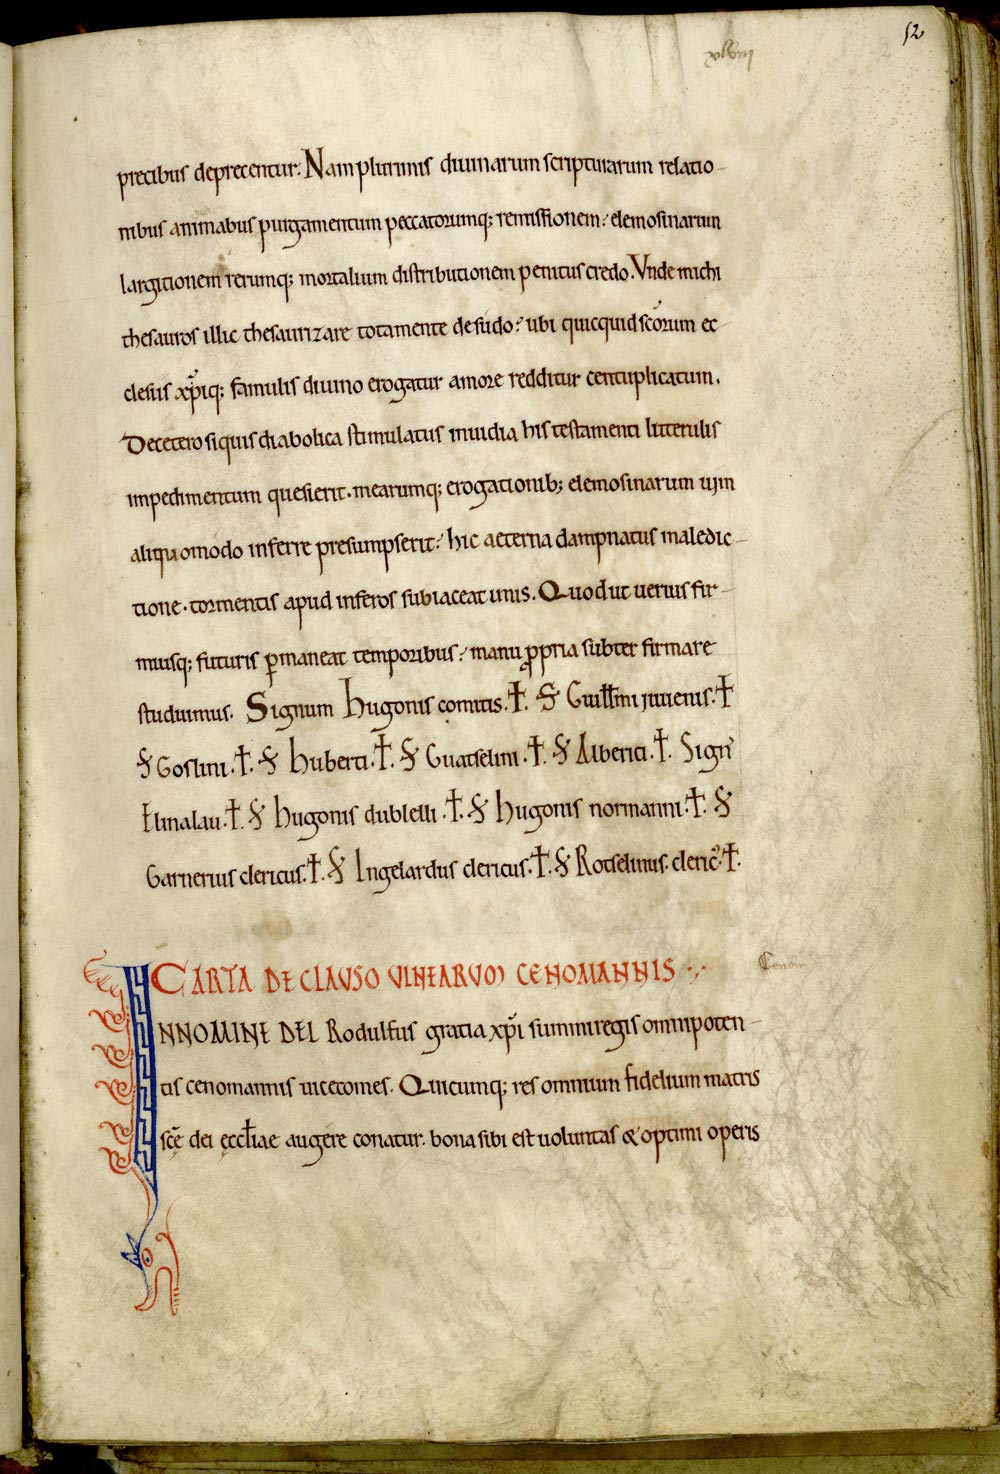 52
xlviii
precibus deprecentur. Nam plurimis diuinarum scripturarum relatio-
nibus animabus purgamentum peccatorumq; remissionem: elemosinarum
largitionem rerumq; mortalium distributionem penitus credo. Vnde michi
thesauros illic thesaurizare tota mente desudo: ubi quicquid scõrum ec-
clesiis xp̃iq; famulis diuino erogatur amore redditur centuplicatum.
De cetero siquis diabolica stimulatus inuidia his testamenti litterulis
impedimentum quesierit. mearumq; erogationib; elemosinarum uim
aliquomodo inferre presumpserit: hic aeterna dampnatus maledic-
tione. tormentis apud inferos subiaceat imis. Quod ut uerius fir-
miusq; futuris ꝑmaneat temporibus: manu ꝓpria subter firmare
studuimus. Signum hugonis comitis. ✝. S Guillmi iuuenis. ✝
S Goslini. ✝. S huberti. ✝. S Guatselini. ✝. S Alberici. ✝. Sign̄
hinalau. ✝. S hugonis dublelli. ✝. S hugonis normanni. ✝. S
Garnerius clericus. ✝. S Ingelardus clericus. ✝. S Rotselinus. cleric᾽. ✝.
CARTA DE CLAVSO VINEARVM CENOMANNIS
Cenom
IN NOMINE DEI. Rodulfus gratia xp̃i summi regis omnipoten-
tis cenomannis uicecomes. Quicumq; res omnium fidelium matris
scę̄ dei ęccl̄iae augere conatur. bona sibi est uoluntas & optimi operis